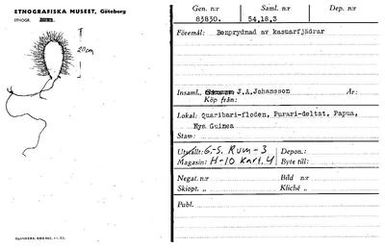 ETNOGRAFISKA MUSEET, Göteborg
20cm
Gen. nr Saml. nr Dep. nr
83830. 54,18,3
Föremål: Benprydnad av kasuarfjädrar
Insaml. J.A.Johansson År:
Köp från:
Lokal: Quaribari-floden, Purari-deltat, Papua,
Nya Guinea
Stam:
Utställt: G-S. Rum-3 Depon.:
Magasin: H-10 Kart. 4 Byte till:
Negat. nr Bild nr
Skiopt. „ Kliché „
Publ.